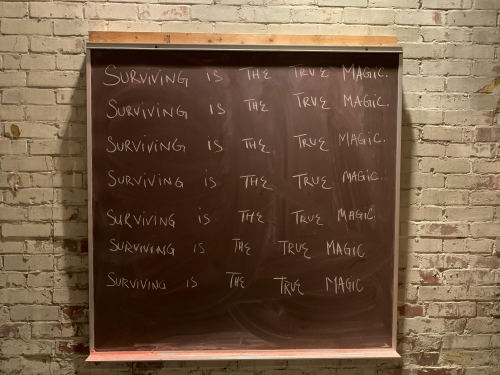 SURVIVING IS THE TRUE MAGIC.
SURVIVING IS THE TRUE MAGIC.
SURVIVING IS THE TRUE MAGIC.
SURVIVING IS THE TRUE MAGIC.
SURVIVING IS THE TRUE MAGIC.
SURVIVING IS THE TRUE MAGIC
SURVIVING IS THE TRUE MAGIC